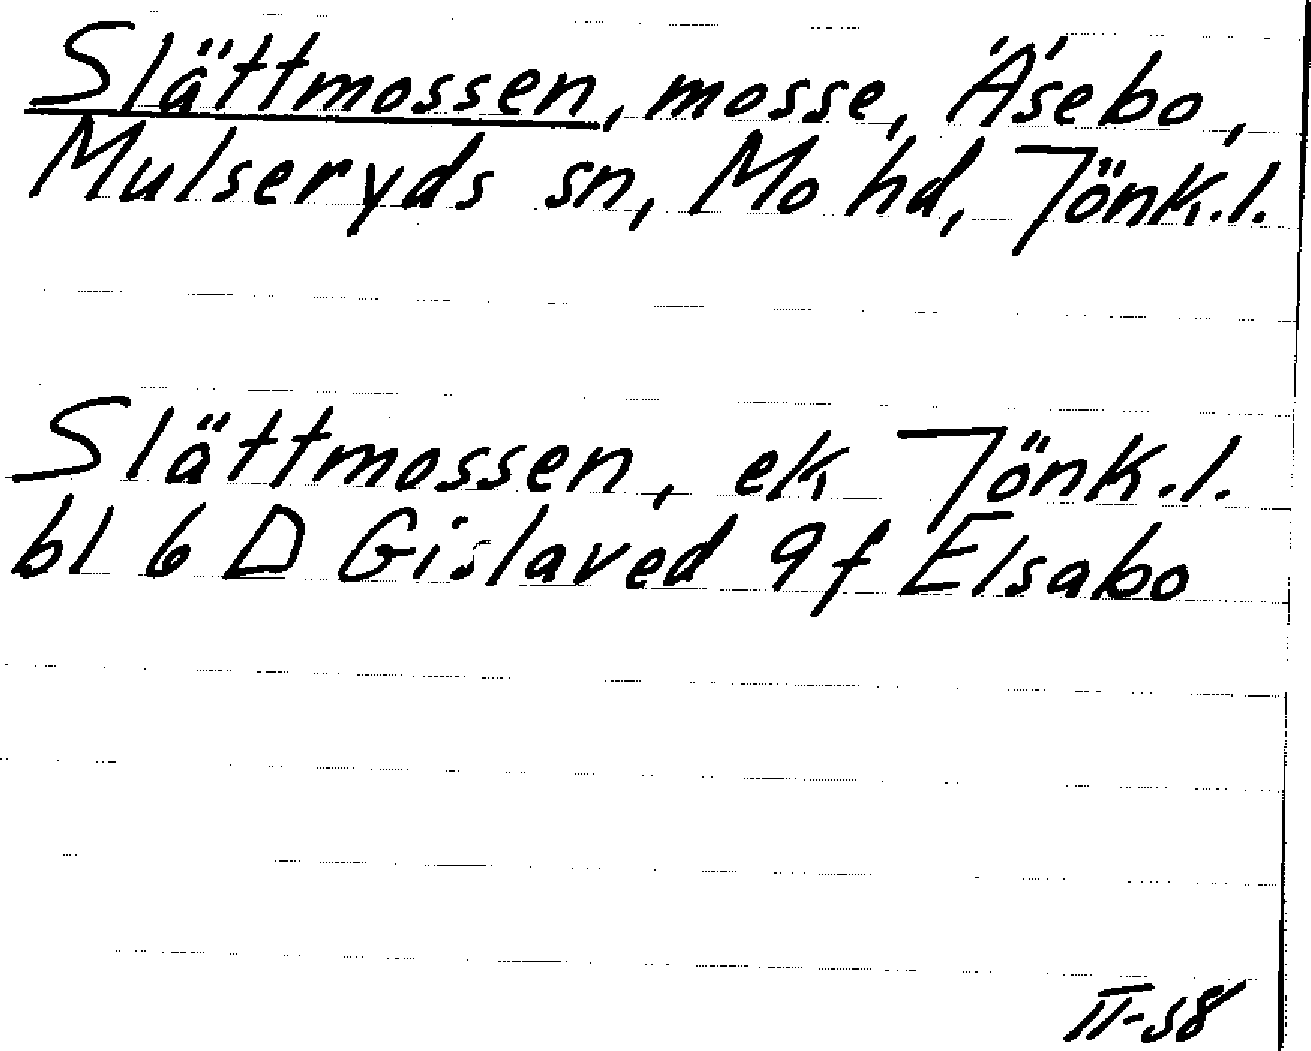 Slättmossen, mosse, Äsebo,
Mulseryds sn, Mo hd, Jönk.l.
Slättmossen, ek Jönk.l.
bl 6 D Gislaved 9f Elsabo
II-58